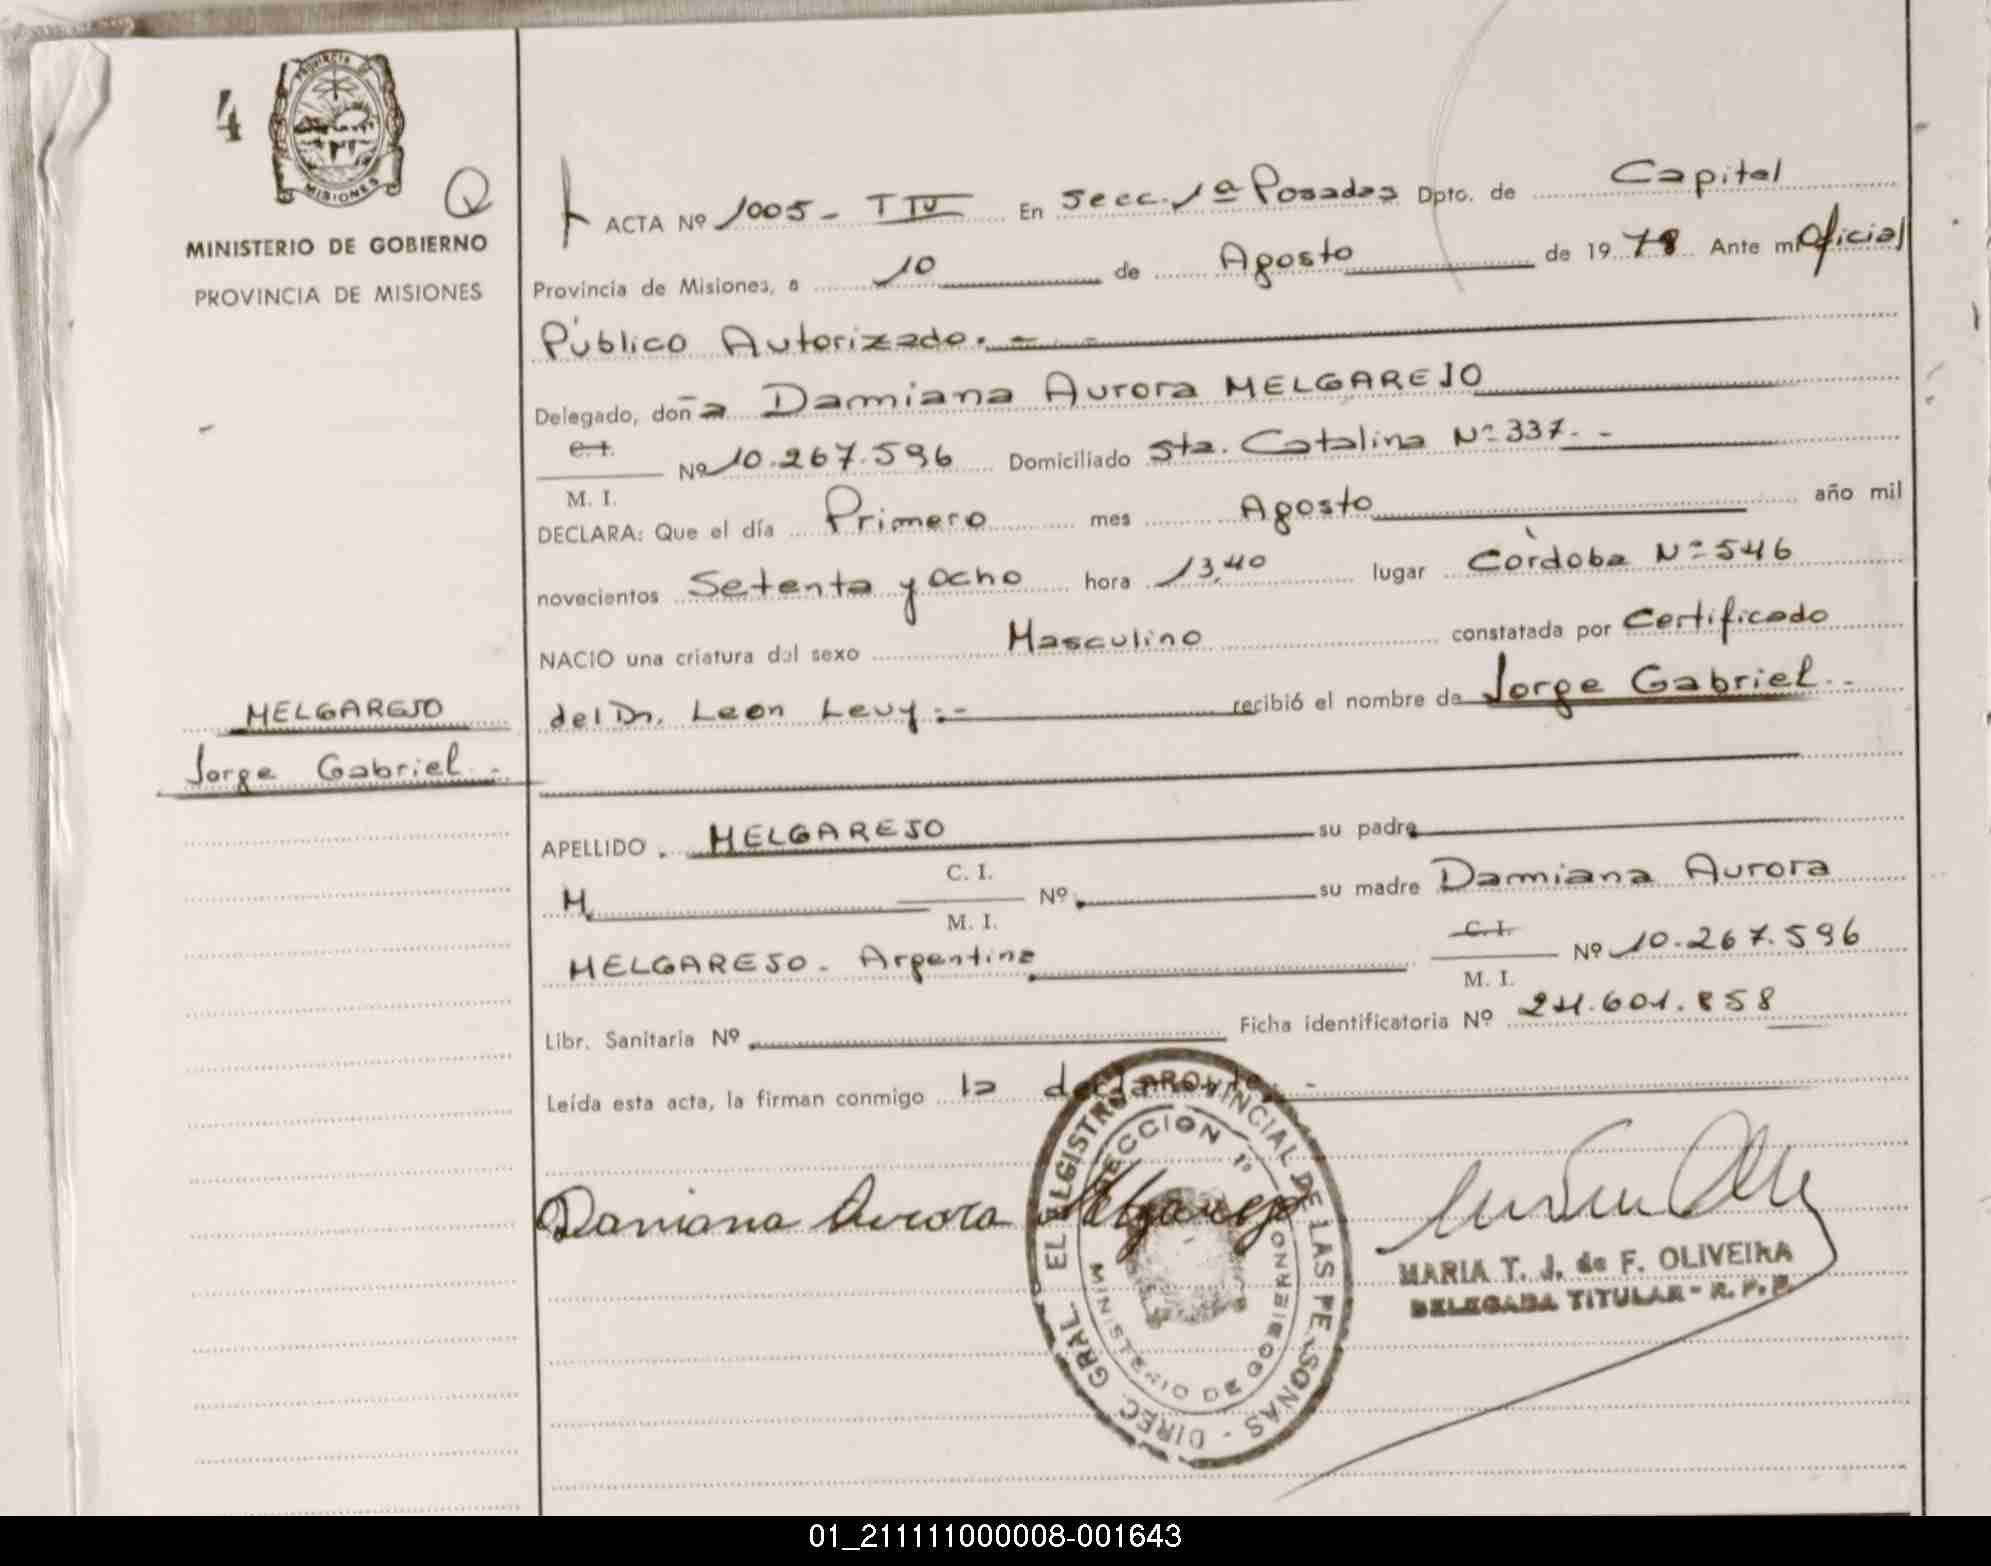 4
PROVINCIA DE
MISIONES
Q
MINISTERIO DE GOBIERNO
PROVINCIA DE MISIONES
MELGAREJO
Jorge Gabriel.-
ACTA Nº 1005- T IV En Secc. 1ª Posadas Dpto. de Capital
Provincia de Misiones, a 10 de Agosto de 1978 Ante mi Oficial
Público Autorizado.-
Delegado, doña Damiana Aurora MELGAREJO
C.I.
M. I. Nº 10.267.596 Domiciliado Sta. Catalina Nº 337.-
DECLARA: Que el día Primero mes Agosto año mil
novecientos Setenta y ocho hora 13,40 lugar Córdoba Nº 546
NACIO una criatura del sexo Masculino constatada por Certificado
del Dr. Leon Levy.- recibió el nombre de Jorge Gabriel.-
APELLIDO. MELGAREJO su padre
M C. I.
M. I. Nº su madre Damiana Aurora
MELGAREJO- Argentina C. I.
M. I. Nº 10.267.596
Libr. Sanitaria Nº Ficha identificatoria Nº 24.601.858
Leída esta acta, la firman conmigo la declarante.-
Damiana Aurora Melgarejo
DIREC. GRAL EL REGISTRO PROVINCIAL DE LAS PERSONAS -
SECCION 1º
MINISTERIO DE GOBIERNO
MARIA T. J. de F. OLIVEIRA
DELEGADA TITULAR - R. P. P.
01_211111000008-001643